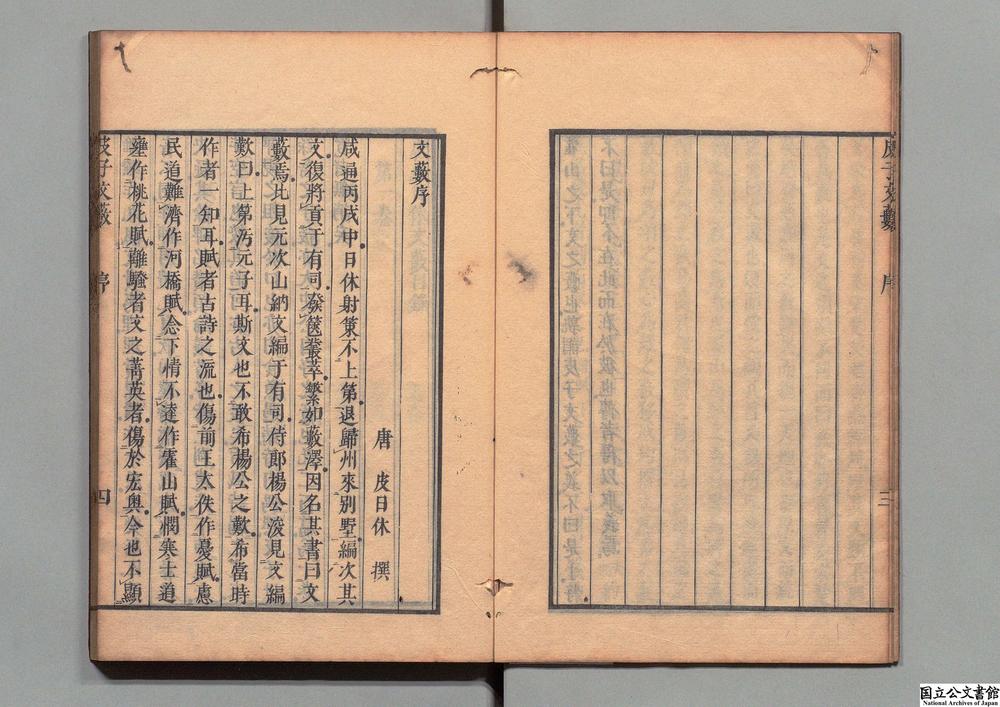 皮子文藪 序 三
文藪序
唐 皮日休 撰
咸通丙戌中日休射策不上第退歸州來別墅編次其
文復將貢于有司發篋叢萃繁如藪澤因名其書曰文
藪焉比見元次山納文編于有司侍郎楊公浚見文編
歎曰上第汚元子耳斯文也不敢希楊公之歎希當時
作者一知耳賦者古詩之流也傷前王太佚作憂賦慮
民道難濟作河橋賦念下情不達作霍山賦憫寒士道
壅作桃花賦離騷者文之菁英者傷於宏奧今也不顯
皮子文藪 序 四
国立公文書館
National Archives of Japan